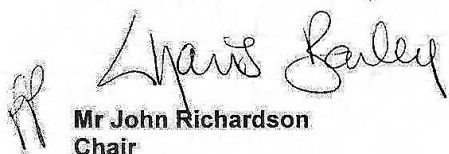 pp Bailey
Mr John Richardson
Chair